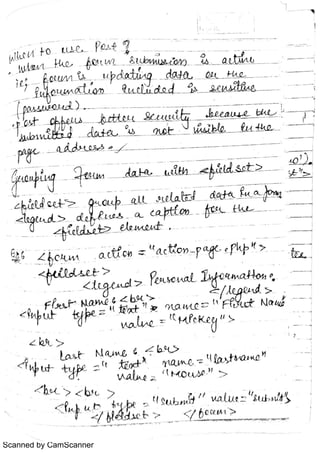 When to use Post ?
• when the form submission is active
ie; form is updating data or the
information included is sensitive
(password).
• post offers better security because the
submitted data is not visible in the
page address.
Grouping Form data with <fieldset>
<fieldset> group all related data in a form
<legend> defines a caption for the
<fieldset> element.
Eg: <form action = "action-page.php">
<fieldset>
<legend> Personal Information:
</legend>
First Name: <br>
<input type = "text" name = "First Name"
value = "Mickey">
<br>
Last Name : <br>
<input type = "text" name = "lastname"
value = "Mouse">
<br> <br>
<input type = "submit" value = "submit">
</fieldset> </form>
Scanned by CamScanner